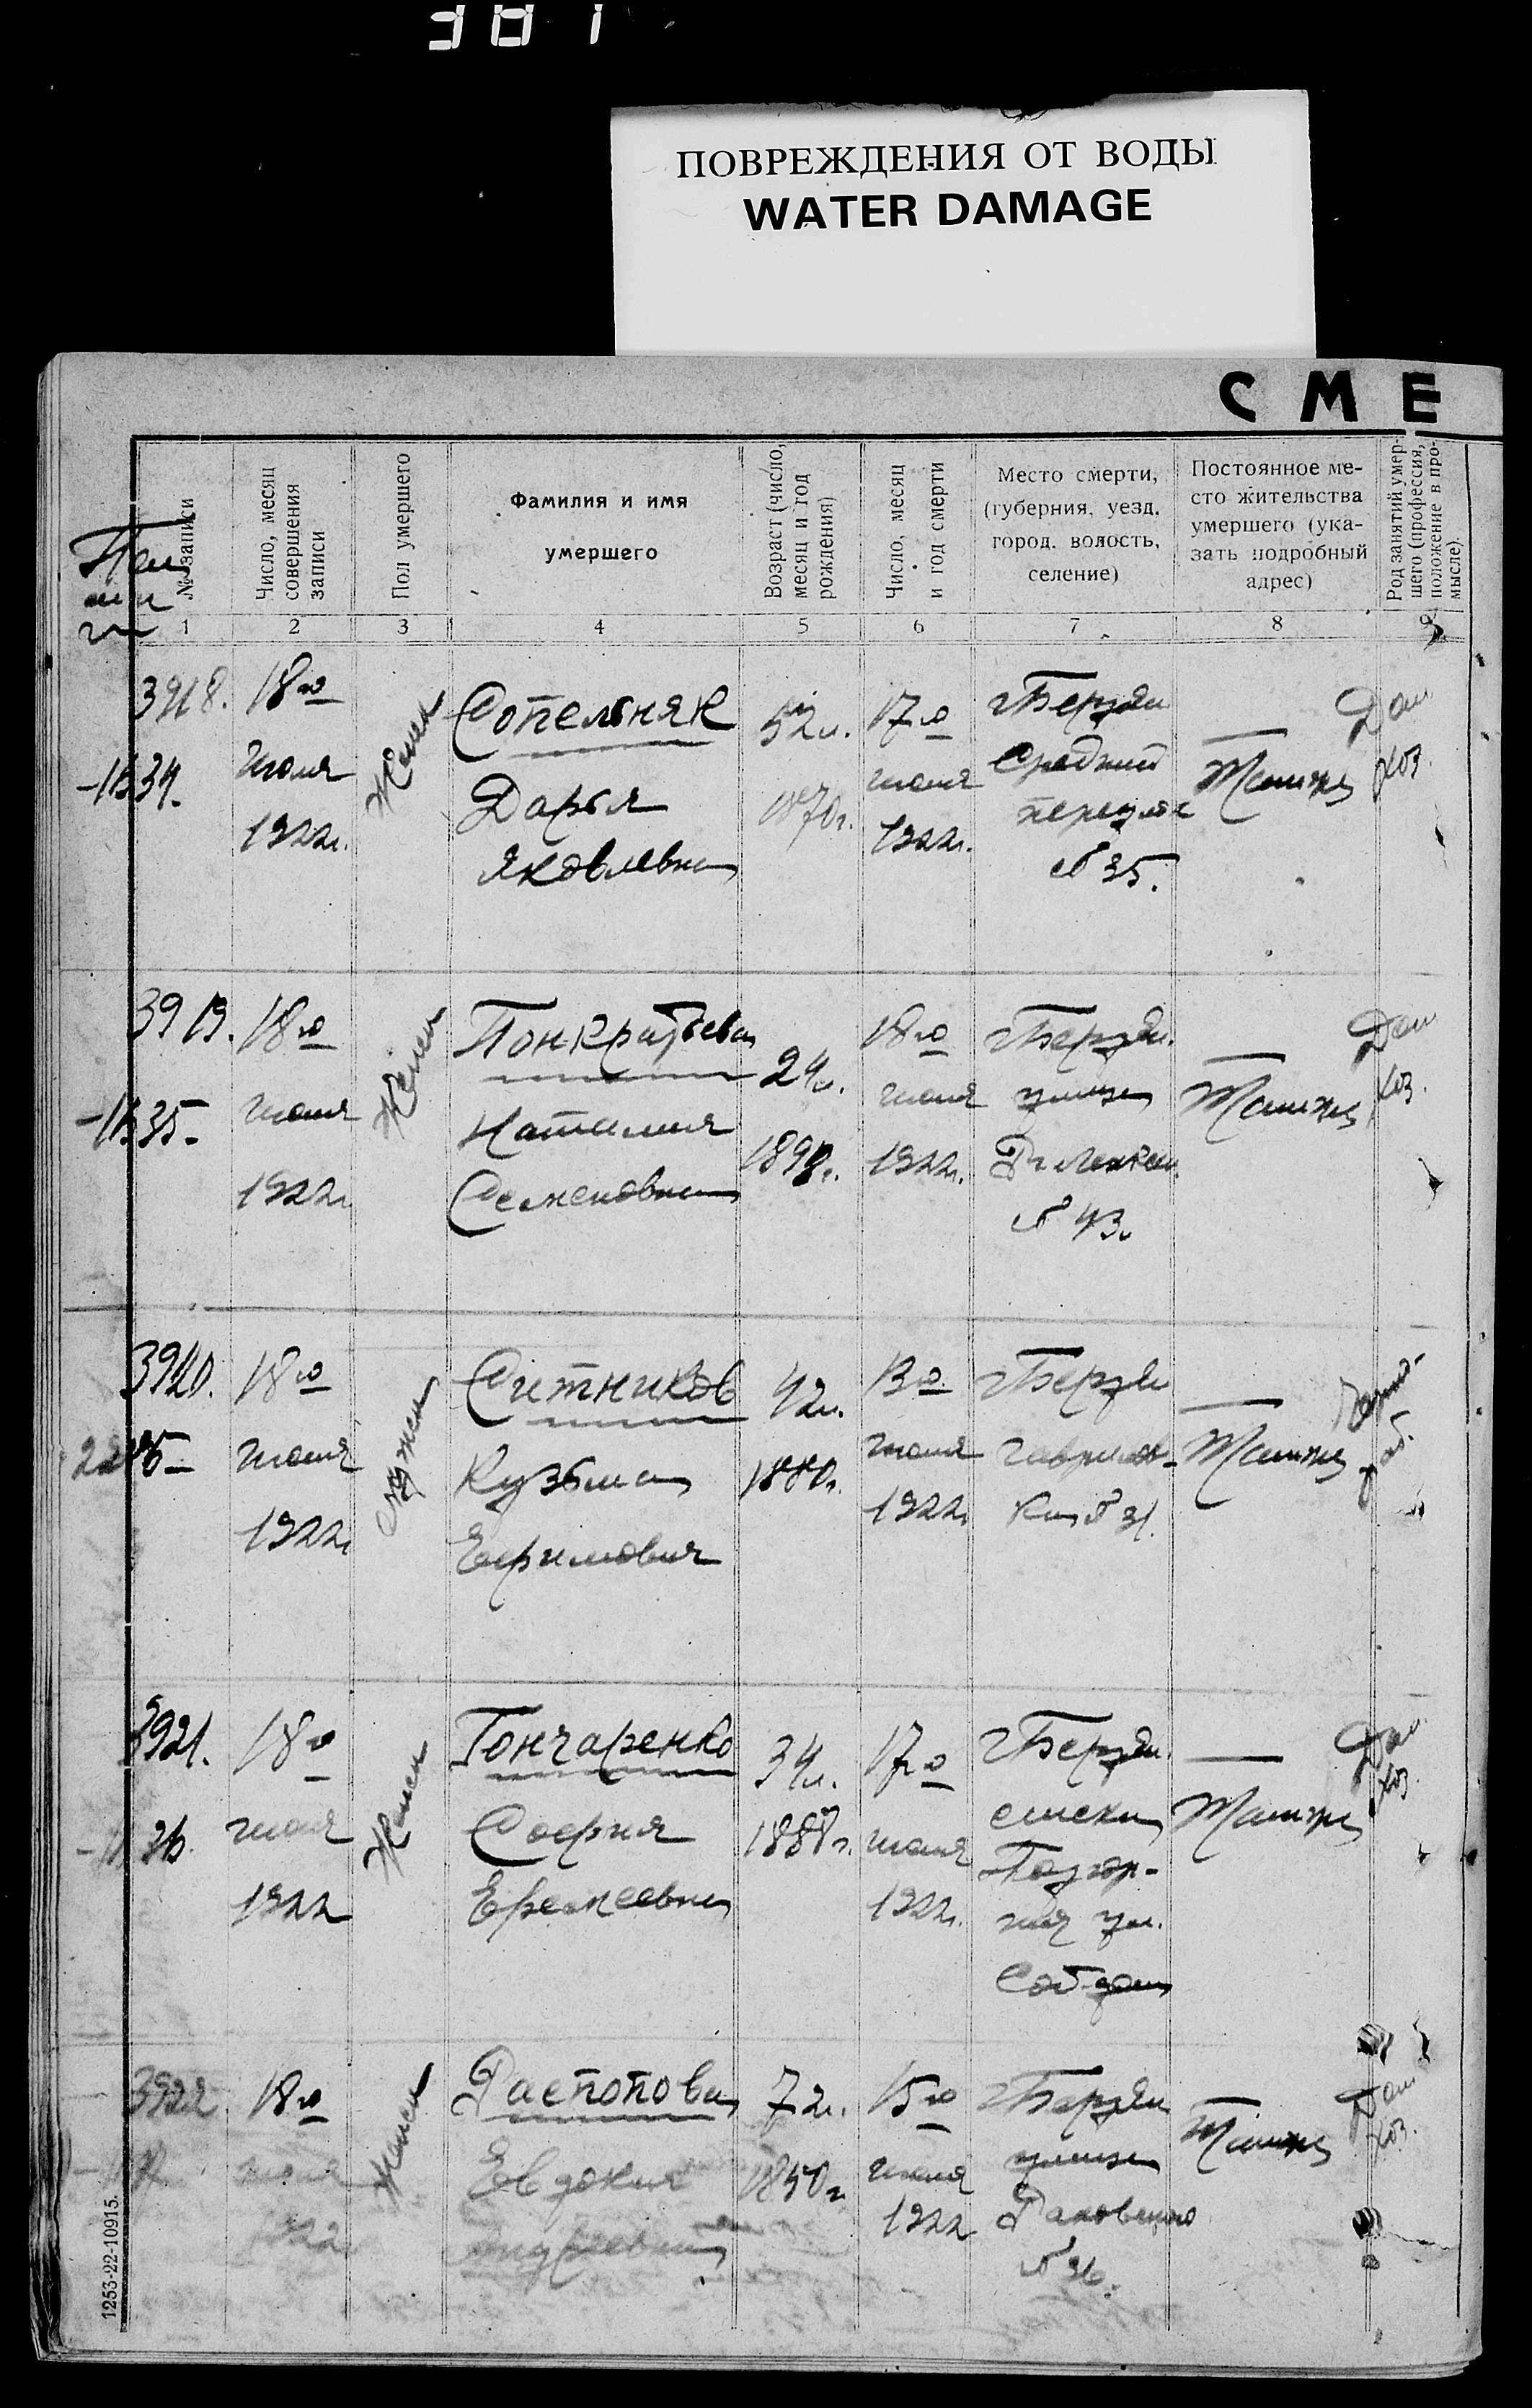 381
ПОВРЕЖДЕНИЯ ОТ ВОДЫ
WATER DAMAGE
СМЕ
№ записи
Число, месяц
совершения
записи
Пол умершего
Фамилия и имя
умершего
Возраст (число,
месяц и год
рождения)
Число, месяц
и год смерти
Место смерти,
(губерния, уезд,
город, волость,
селение)
Постоянное ме-
сто жительства
умершего (ука-
зать подробный
адрес)
Род занятий умер-
шего (профессия,
положение в про-
мысле).
1 2 3 4 5 6 7 8 9
3918.
18го
июля
1922г.
Женск
Сопельняк
Дарья
Яковлевна
52л.
1870г.
17го
июля
1922г.
г Бердян
Средний
№ 35.
Там же
Дом
хоз.
3919.
18го
июля
1922г
Женск
Понкратьева
Наталия
Семеновна
24л.
1898г.
18го
июля
1922г.
г Бердян.
улица
№ 43.
Там же
Дом
хоз.
3920.
18го
июля
1922г
Мужск
Ситников
Кузьма
Ефимович
42л.
1880г.
13го
июля
1922г
г Бердян
№ 31.
Там же
раб.
3921.
18го
июля
1922
Женск
Гончаренко
София
Еремеевна
34л.
1888г.
17го
июля
1922г.
г Бердян.
ул.
Соб дом
Там же
Дом
хоз.
3922
18го
июля
1922
Женск
Распопова
Евдокия
Андреевна
72л.
1850г
15го
июля
1922
г Бердян
улица
№ 36.
Там же
Дом
хоз.
1253-22-10915.